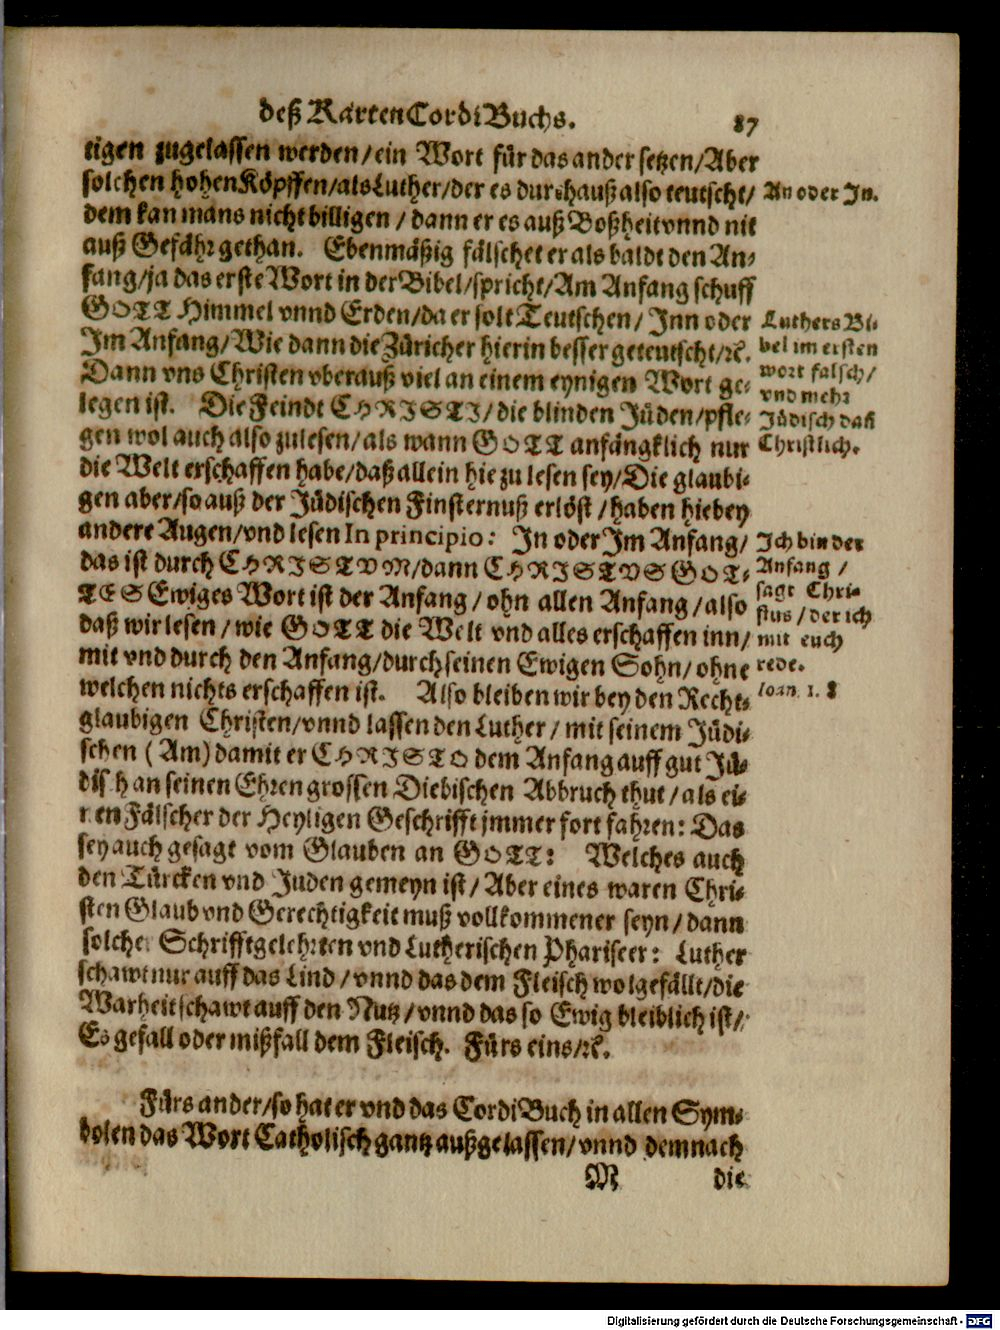 deß KartenCordiBuchs.
87
tigen zugelassen werden/ein Wort für das ander setzen/Aber
solchen hohen Köpffen/als Luther/der es durchauß also teutscht/
dem kan mans nicht billigen / dann er es auß Boßheit vnnd nit
auß Gefähr gethan. Ebenmäßig fälschet er als baldt den An-
fang/ja das erste Wort in der Bibel/spricht/Am Anfang schuff
GOTT Himmel vnnd Erden/da er solt Teutschen/ Inn oder
Im Anfang/Wie dann die Züricher hierin besser geteutscht/ꝛc.
Dann vns Christen vberauß viel an einem eynigen Wort ge-
legen ist. Die Feindt CHRISTI/die blinden Jüden/pfle-
gen wol auch also zulesen/als wann GOTT anfängklich nur
die Welt erschaffen habe/daß allein hie zu lesen sey/Die glaubi-
gen aber/so auß der Jüdischen Finsternuß erlöst/haben hiebey
andere Augen/vnd lesen In principio: In oder Im Anfang/
das ist durch CHRISTVM/dann CHRISTVS GOT-
TES Ewiges Wort ist der Anfang/ohn allen Anfang/also
daß wir lesen/wie GOTT die Welt vnd alles erschaffen inn/
mit vnd durch den Anfang/durch seinen Ewigen Sohn/ohne
welchen nichts erschaffen ist. Also bleiben wir bey den Recht-
glaubigen Christen/vnnd lassen den Luther/mit seinem Jüdi-
schen (Am) damit er CHRISTO dem Anfang auff gut Jü-
disch an seinen Ehren grossen Diebischen Abbruch thut/als ei-
nen Fälscher der Heyligen Geschrifft jmmer fort fahren: Das
sey auch gesagt vom Glauben an GOTT: Welches auch
den Türcken vnd Juden gemeyn ist/Aber eines waren Chri-
sten Glaub vnd Gerechtigkeit muß vollkommener seyn/dann
solche Schrifftgelehrten vnd Lutherischen Phariseer: Luther
schawt nur auff das Lind/vnnd das dem Fleisch wolgefällt/die
Warheit schawt auff den Nutz/vnnd das so Ewig bleiblich ist/
Es gefall oder mißfall dem Fleisch. Fürs eins/ꝛc.
Fürs ander/so hat er vnd das CordiBuch in allen Sym-
bolen das Wort Catholisch gantz außgelassen/vnnd demnach
M
die
An oder In.
Luthers Bi-
bel im ersten
wort falsch/
vnd mehr
Jüdisch dañ
Christlich.
Ich bin der
Anfang /
sagt Chri-
stus/der ich
mit euch
rede.
Ioan. 1. 8
Digitalisierung gefördert durch die Deutsche Forschungsgemeinschaft - DFG